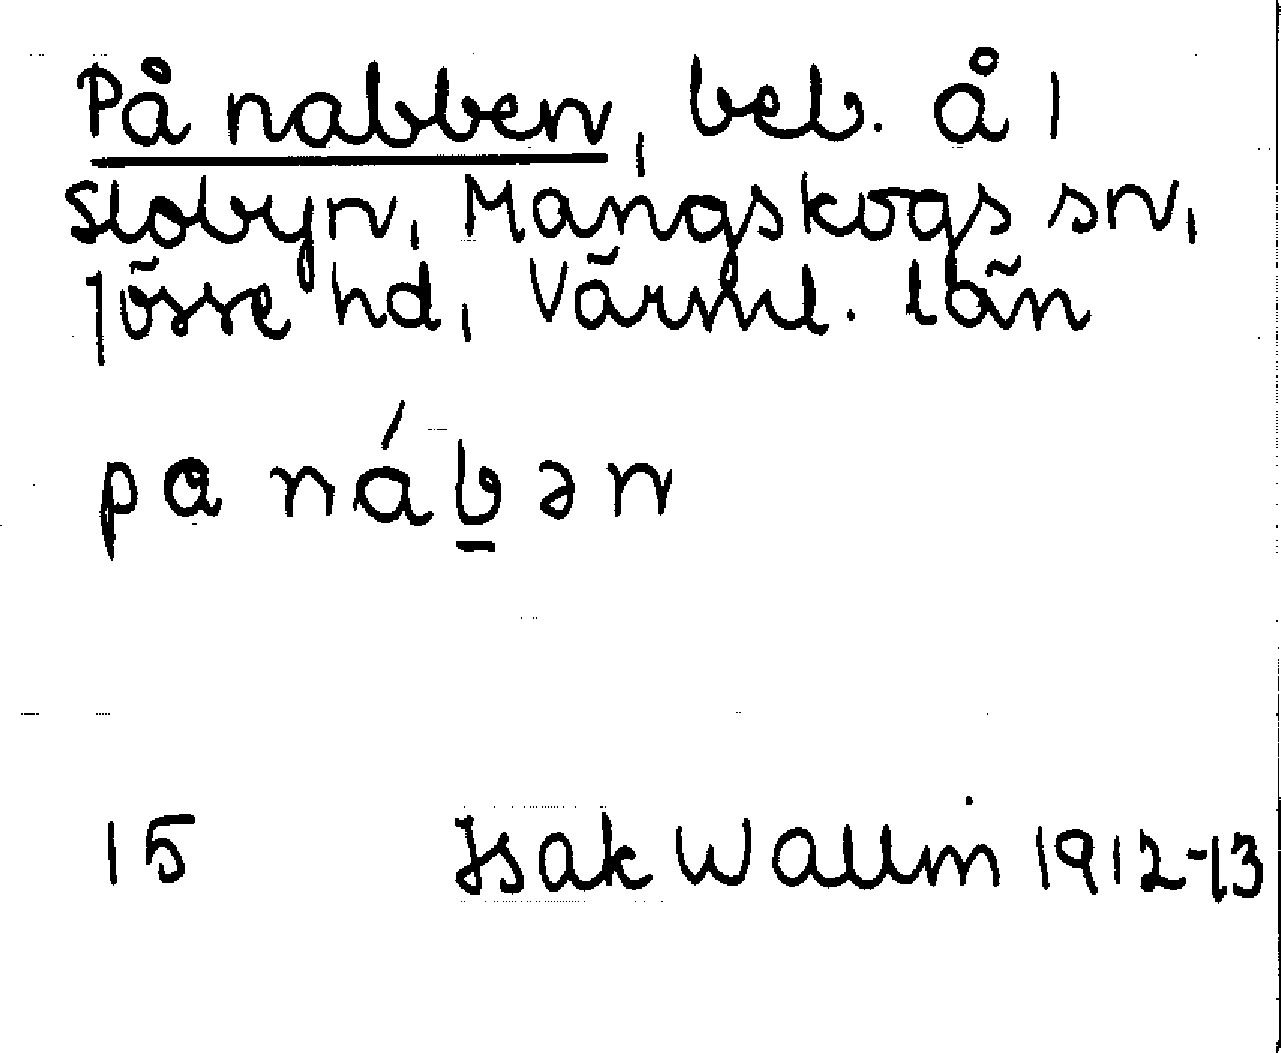 På nabben, beb. å 1
Slobyn, Mangskogs sn,
Jösse hd, Värml. län
pa nábən
15 Isak Wallin 1912-13